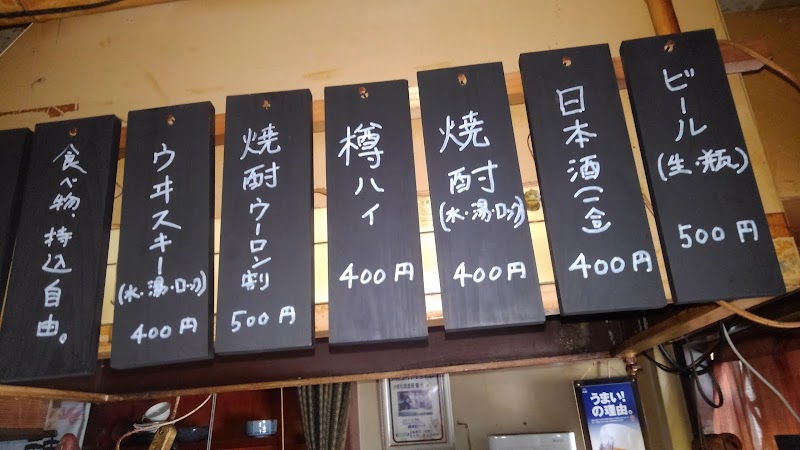 ビール
(生・瓶)
500円
日本酒(一合)
400円
焼酎
(水・湯・ロック)
400円
樽ハイ
400円
焼酎ウーロン割
500円
ウヰスキー
(水・湯・ロック)
400円
食べ物、持込自由。
うまい!
の理由。